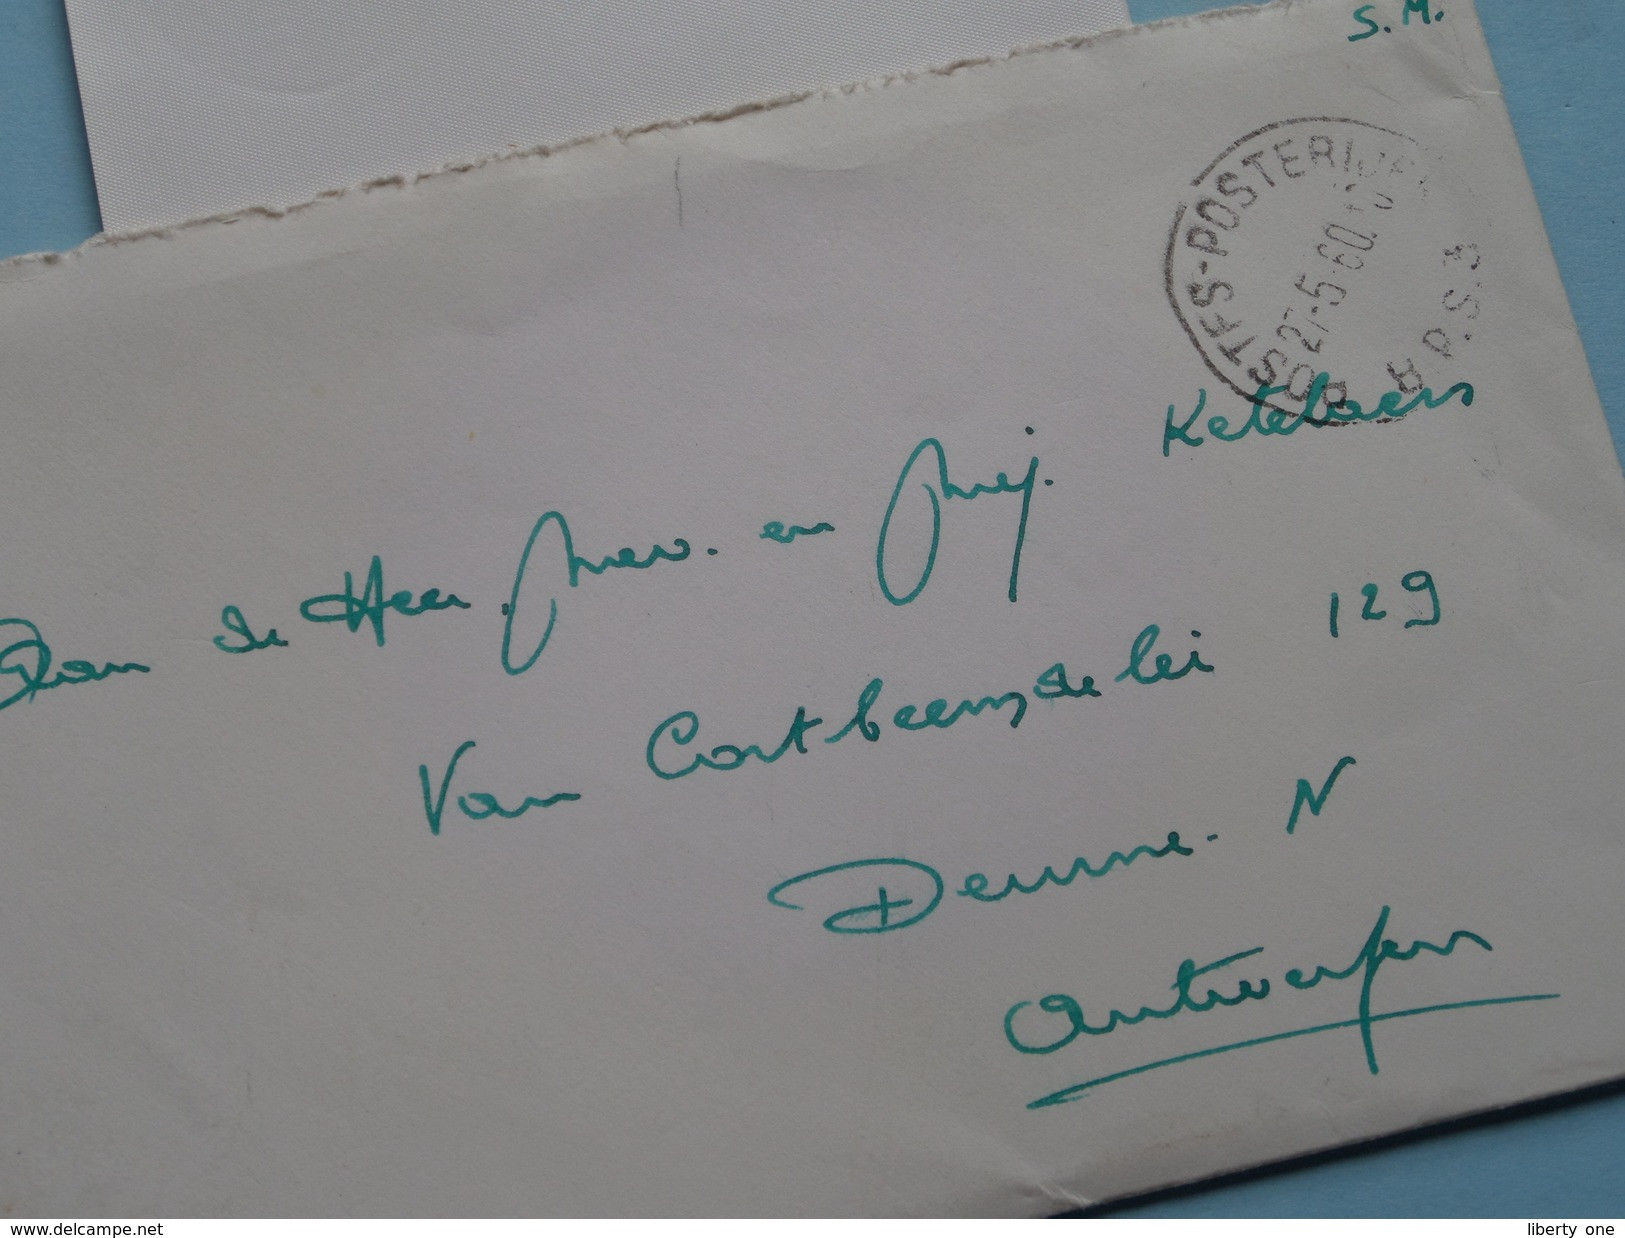 S.M.
POSTES-POSTERIJEN
27-5-60
B.P.S.3
Aan de Heer, Mevr. en Mej. Ketelaers
Van Cortbeemdelei 129
Deurne. N
Antwerpen
www.delcampe.net
liberty_one